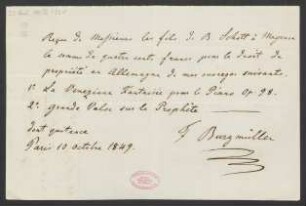 Reçu de Messieurs les fils de B. Schott à Mayence
la somme de quatre cents francs pour le droit de
propriété en Allemagne de mes ouvrages suivants.
1º La Vénézienne fantaisie pour le Piano Op. 98.
2º Grande Valse sur le Prophète
dont quittance
Paris 10 octobre 1849.
F Burgmüller